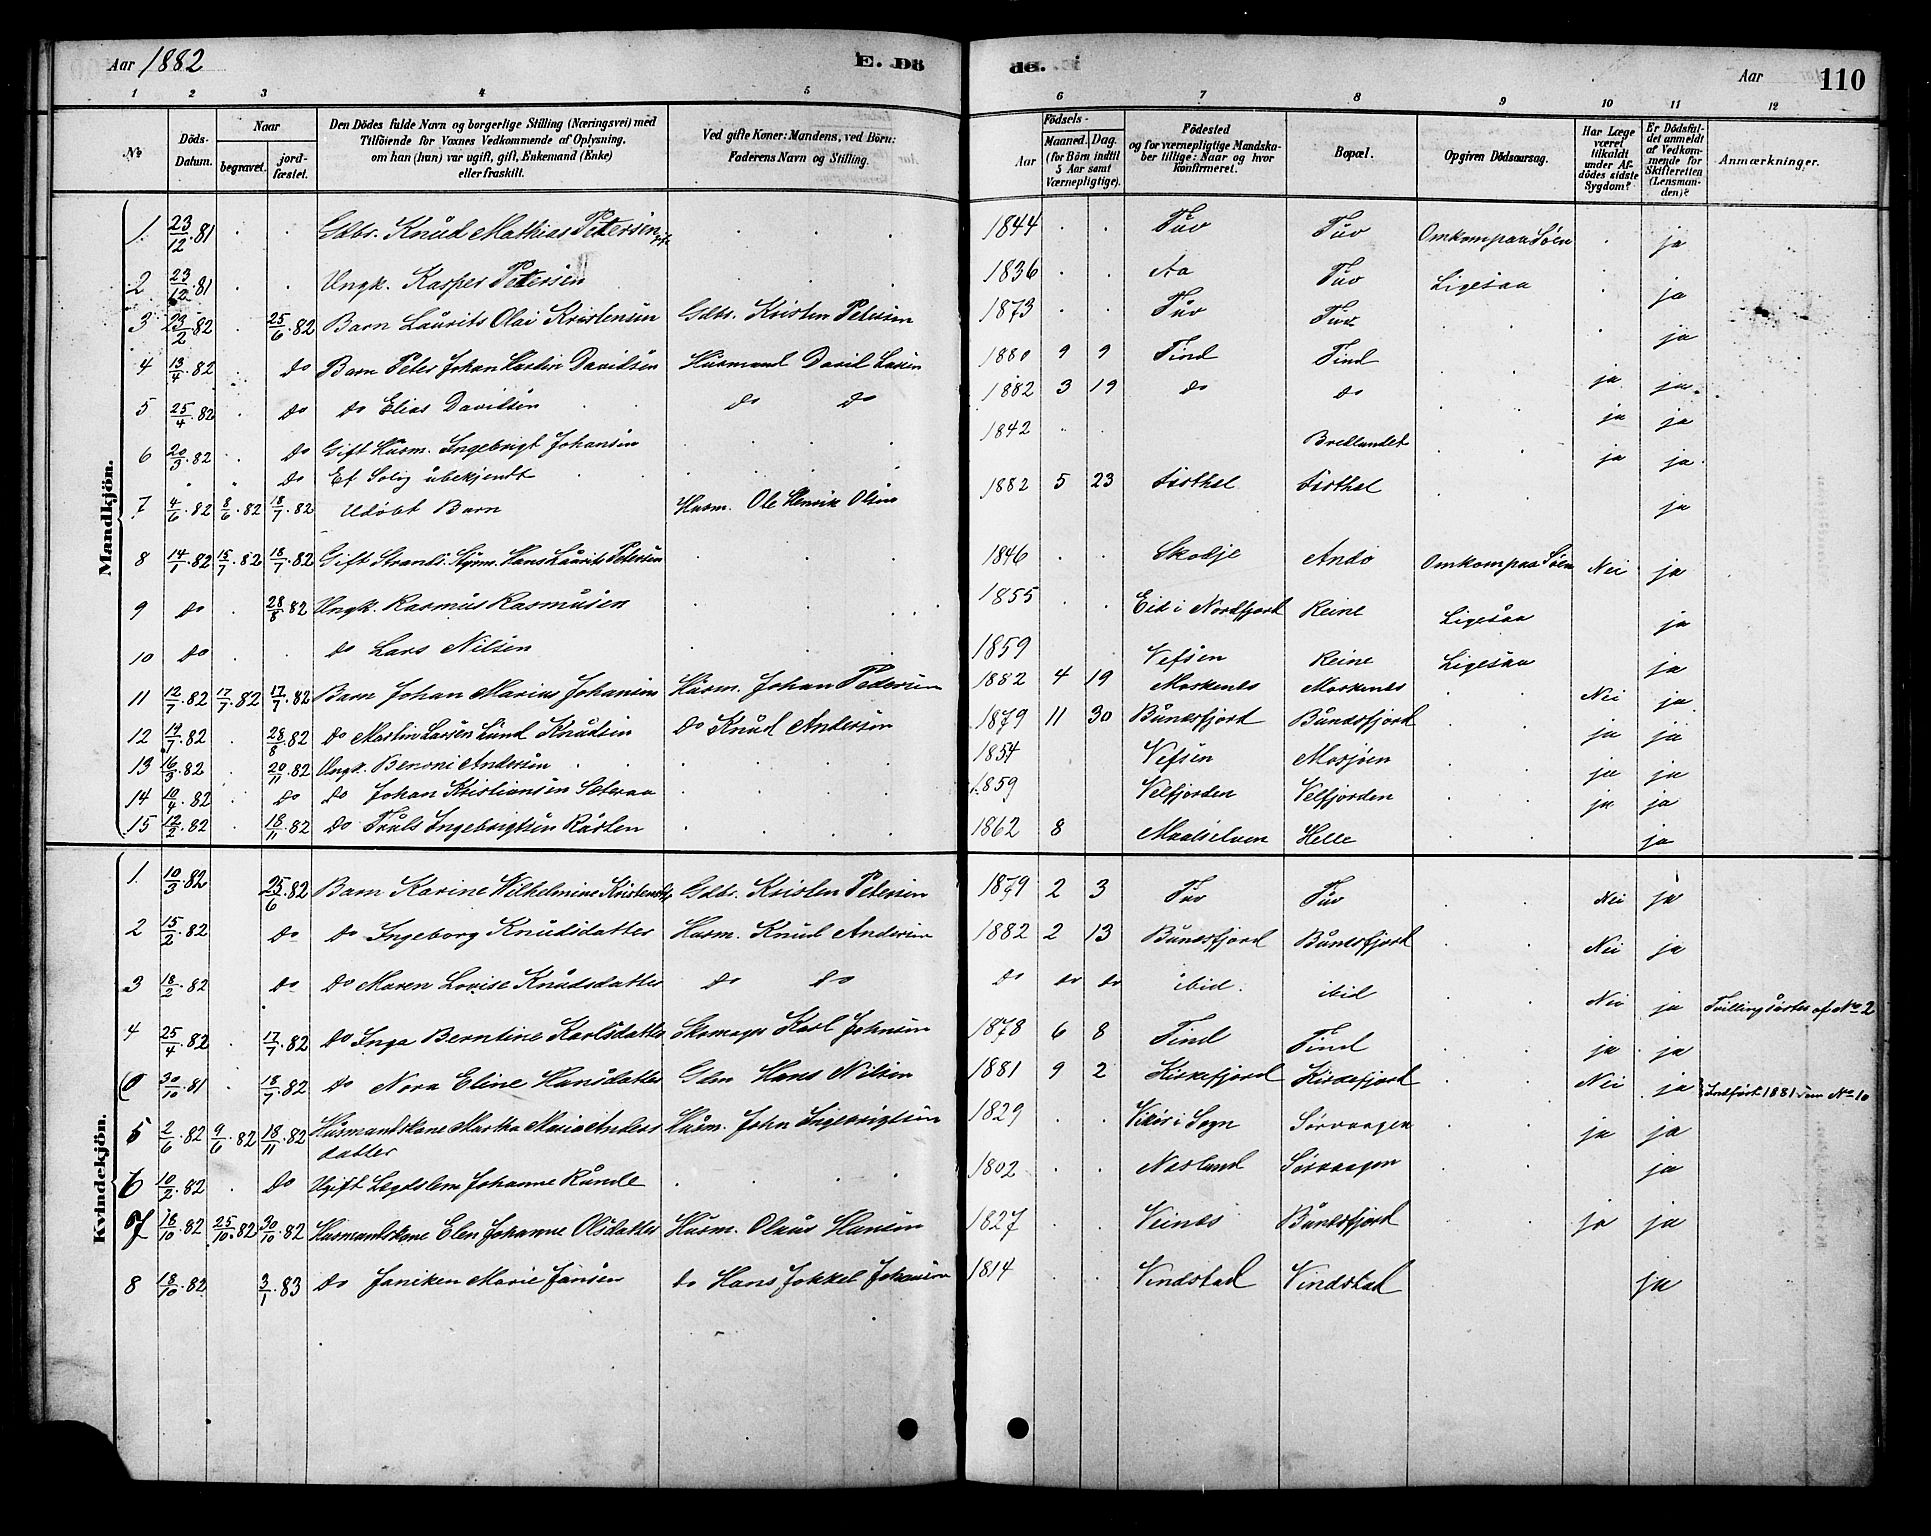 Aar 1882 E. Dö de. Aar 110
1 2 3 4 5 6 7 8 9 10 11 12
No Döds-Datum. Naar begravet. jord-fæstet. Den Dödes fulde Navn og borgerlige Stilling (Næringsvei) med Tilföiende for Voxnes Vedkommende af Oplysning, om han (hun) var ugift, gift, Enkemand (Enke) eller fraskilt. Ved gifte Koner: Mandens, ved Börn: Faderens Navn og Stilling. Aar Födsels- Maaned. Dag. (for Börn indtil 5 Aar samt Værnepligtige). Födested og for værnepligtige Mandskaber tillige: Naar og hvor konfirmeret. Bopæl. Opgiven Dödsaarsag. Har Læge været tilkaldt under Afdödes sidste Sygdom? Er Dödsfaldet anmeldt af Vedkommende for Skifteretten (Lensmanden)? Anmærkninger.
Mandkjön.
1 23/12.81 Gdbr. Knud Mathias Petersen gift 1844 Tuv Tuv Omkom paa Söen ja
2 23/12.81 Ungk. Kasper Petersen 1836 Aa Tuv Ligesaa ja
3 23/2.82 25/6.82 Barn Laurits Olai Kristensen Gdbr. Kristen Petersen 1873 Tuv Tuv ja
4 13/4.82 do Barn Peter Johan Davidsen Husmand David Larsen 1880 9 9 Tind Tind ja ja
5 25/4.82 do do Elias Davidsen do do 1882 3 19 do do ja ja
6 20/3.82 do Gift Husm. Ingebrigt Johansen 1842 Bredlandet ja ja
do Et Solig ubekjendt
7 4/6.82 8/6.82 18/7.82 Udöbt Barn Husm. Ole Henrik Olsen 1882 5 23 ja
8 14/1.82 15/7.82 18/7.82 Gift Hans Laurits Petersen 1846 Skodje Andö Omkom paa Söen Nei ja
9 do 28/8.82 Ungk. Rasmus Rasmusen 1855 Eid i Nordfjord Reine Ligesaa ja
10 do do Lars Nilsen 1859 Vefsen Reine Ligesaa ja
11 12/7.82 17/7.82 17/7.82 Barn Johan Marius Johansen Husm. Johan Pedersen 1882 4 19 Moskenes Moskenes Nei ja
12 17/7.82 28/8.82 do Martin Larsen Lund Knudsen do Knud Andersen 1879 11 30 Bunesfjord Bunesfjord ja ja
13 16/3.82 20/11.82 Ungk. Benoni Andersen 1854 Vefsen Mosjöen ja ja
14 10/4.82 do do Johan Kristiansen Seteraa 1859 Velfjorden Velfjorden ja ja
15 12/2.82 18/11.82 do Truls Ingebrigtsen Rasten 1862 8 Maalselven Helle ja
Kvindekjön.
1 10/3.82 25/6.82 Barn Karine Wilhelmine Kristensd. Gdbr. Kristen Petersen 1879 2 3 Tuv Tuv Nei ja
2 15/2.82 do do Ingeborg Knudsdatter Husm. Knud Andersen 1882 2 13 Bunesfjord Bunesfjord Nei ja
3 18/2.82 do do Maren Lovise Knudsdatter do do do do do ibid. ibid Nei ja Tvilling Söster af No 2
4 25/4.82 17/7.82 do Inga Berntine Karlsdatter Skomager Karl Johnsen 1878 6 8 Tind Tind ja ja
(0 30/10.81 18/7.82 do Nora Eline Hansdatter Gbm Hans Nilsen 1881 9 2 Kirkefjord Kirkefjord Nei ja Indfört 1881 som No 10
5 2/6.82 9/6.82 18/11.82 Husmandskone Martha Maria Anders Husm. John Ingebrigtsen 1829 Vikör i Sogn Sörvaagen ja ja
datter
6 10/2.82 do Ugift Lægdslem Johanne Runde 1802 Næsland Sörvaagen ja
7 16/10.82 25/10.82 30/10.82 Husmandskone Elen Johanne Olsdatter Husm. Olaus Hansen 1827 Veines Bunesfjord ja ja
8 18/10.82 3/1.83 do Janiken Marie Jansen do Hans Jokkel Johansen 1814 Vindstad Vindstad ja